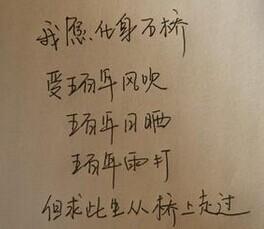 我愿化身石桥
受五百年风吹
五百年日晒
五百年雨打
但求此生从桥上走过